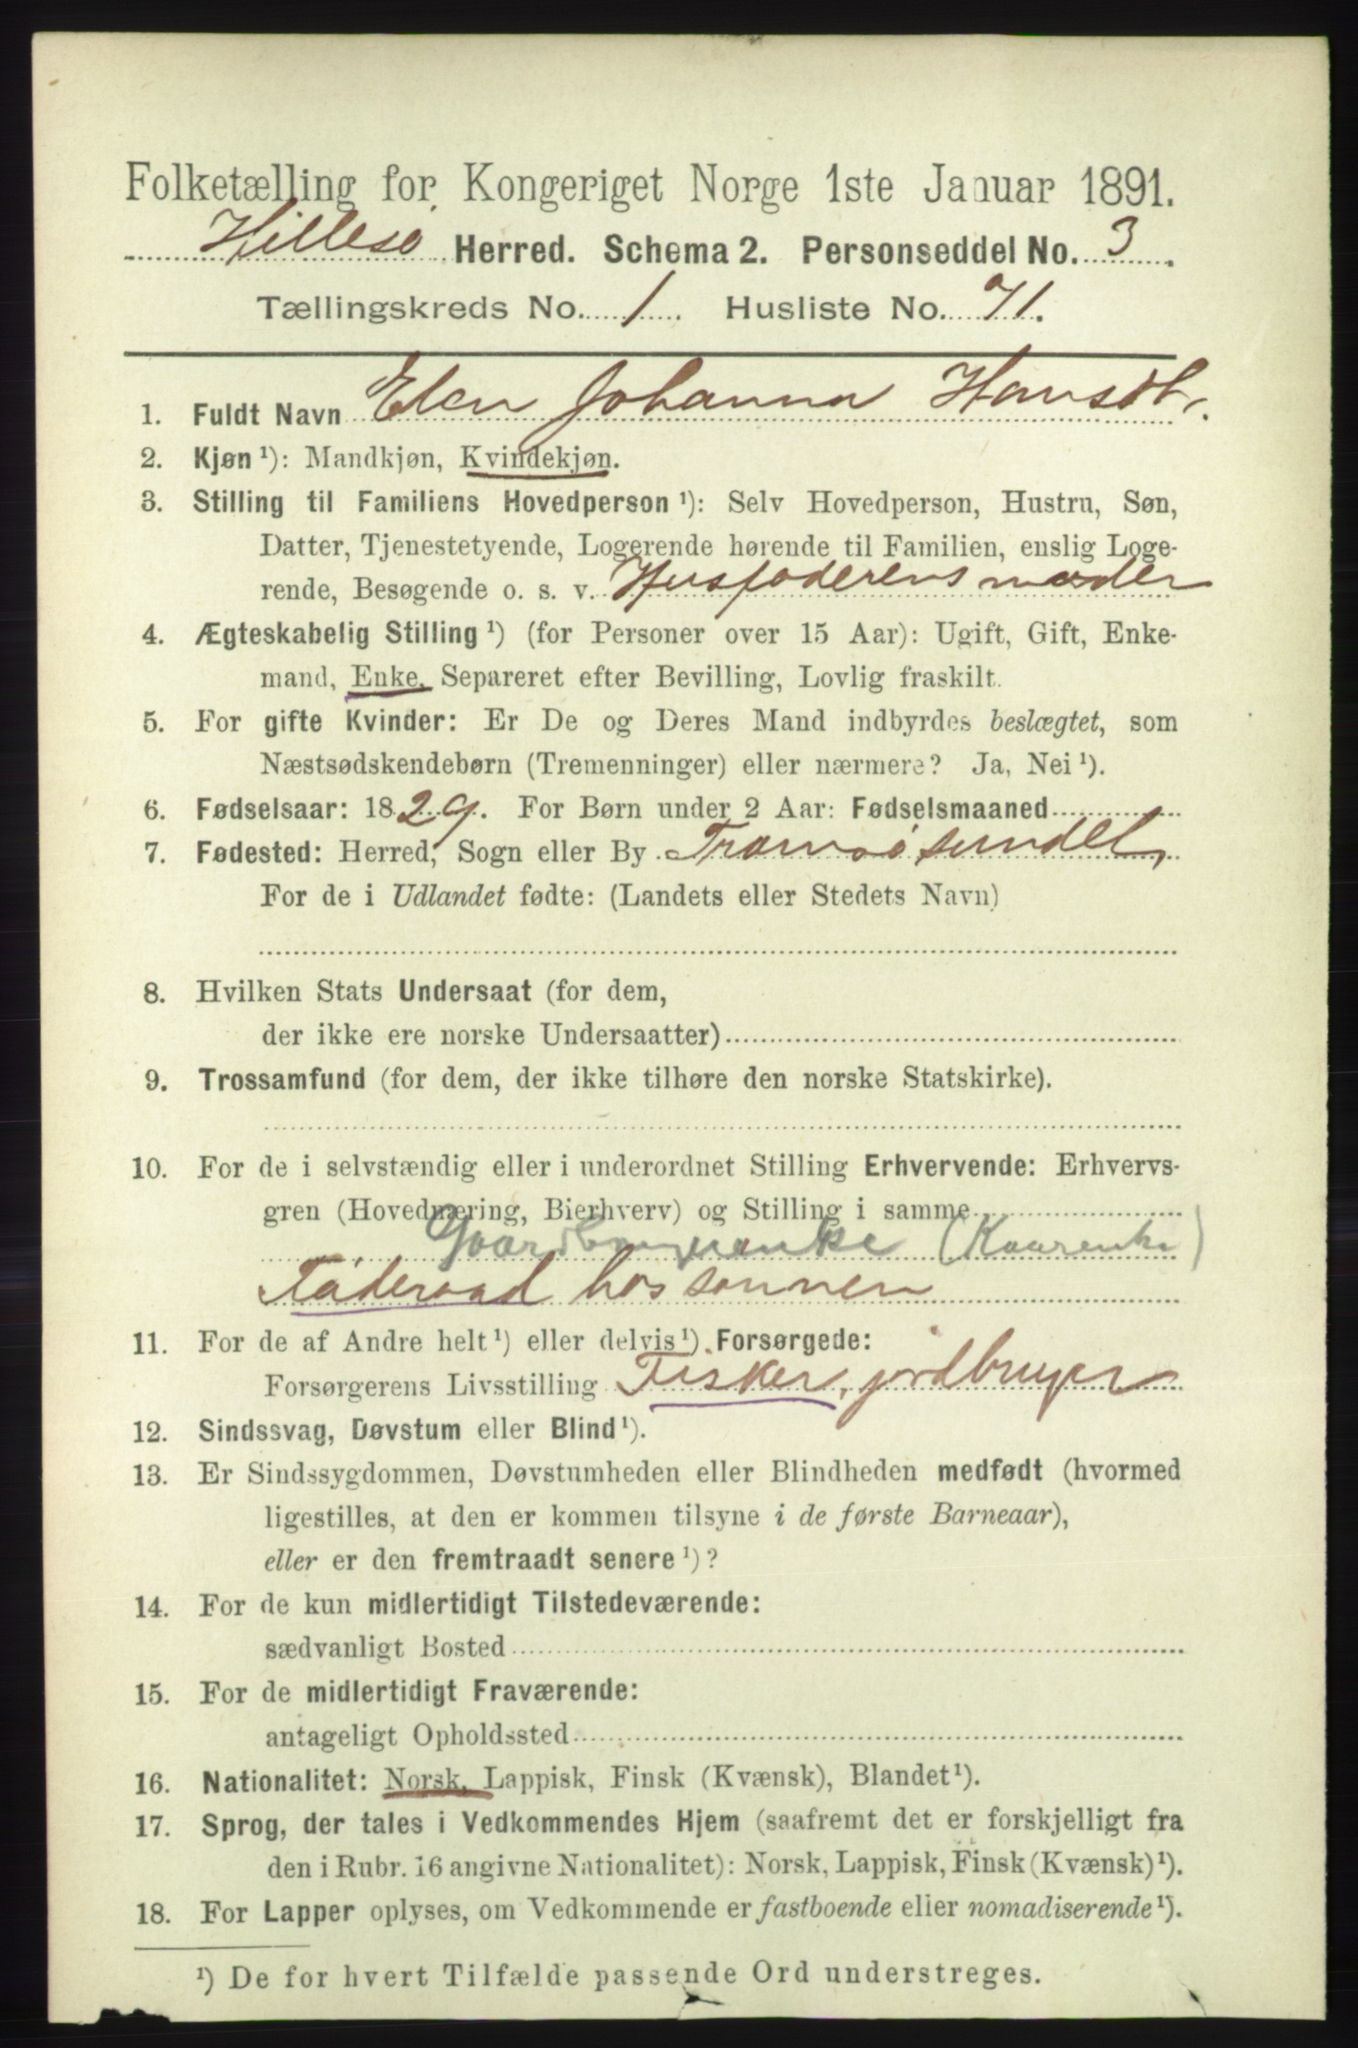 Folketælling for Kongeriget Norge 1ste Januar 1891.
Hillesö Herred. Schema 2. Personseddel No. 3.
Tællingskreds No. 1. Husliste No. 71.
1. Fuldt Navn Elen Johanna Hansdt.
2. Kjøn ¹): Mandkjøn, Kvindekjøn.
3. Stilling til Familiens Hovedperson ¹): Selv Hovedperson, Hustru, Søn,
Datter, Tjenestetyende, Logerende hørende til Familien, enslig Loge-
rende, Besøgende o. s. v. Husfaderens moder
4. Ægteskabelig Stilling ¹) (for Personer over 15 Aar): Ugift, Gift, Enke-
mand, Enke, Separeret efter Bevilling, Lovlig fraskilt.
5. For gifte Kvinder: Er De og Deres Mand indbyrdes beslægtet, som
Næstsødskendebørn (Tremenninger) eller nærmere? Ja, Nei ¹).
6. Fødselsaar: 1829. For Børn under 2 Aar: Fødselsmaaned
7. Fødested: Herred, Sogn eller By Tromsösundet
For de i Udlandet fødte: (Landets eller Stedets Navn)
8. Hvilken Stats Undersaat (for dem,
der ikke ere norske Undersaatter)
9. Trossamfund (for dem, der ikke tilhøre den norske Statskirke).
10. For de i selvstændig eller i underordnet Stilling Erhvervende: Erhvervs-
gren (Hovednæring, Bierhverv) og Stilling i samme
Gaardbrugerenke (Kaarenke)
Föderaad hos sönnen
11. For de af Andre helt ¹) eller delvis ¹) Forsørgede:
Forsørgerens Livsstilling Fisker, jordbruger
12. Sindssvag, Døvstum eller Blind ¹).
13. Er Sindssygdommen, Døvstumheden eller Blindheden medfødt (hvormed
ligestilles, at den er kommen tilsyne i de første Barneaar),
eller er den fremtraadt senere ¹)?
14. For de kun midlertidigt Tilstedeværende:
sædvanligt Bosted
15. For de midlertidigt Fraværende:
antageligt Opholdssted
16. Nationalitet: Norsk, Lappisk, Finsk (Kvænsk), Blandet ¹).
17. Sprog, der tales i Vedkommendes Hjem (saafremt det er forskjelligt fra
den i Rubr. 16 angivne Nationalitet): Norsk, Lappisk, Finsk (Kvænsk) ¹).
18. For Lapper oplyses, om Vedkommende er fastboende eller nomadiserende ¹).
¹) De for hvert Tilfælde passende Ord understreges.